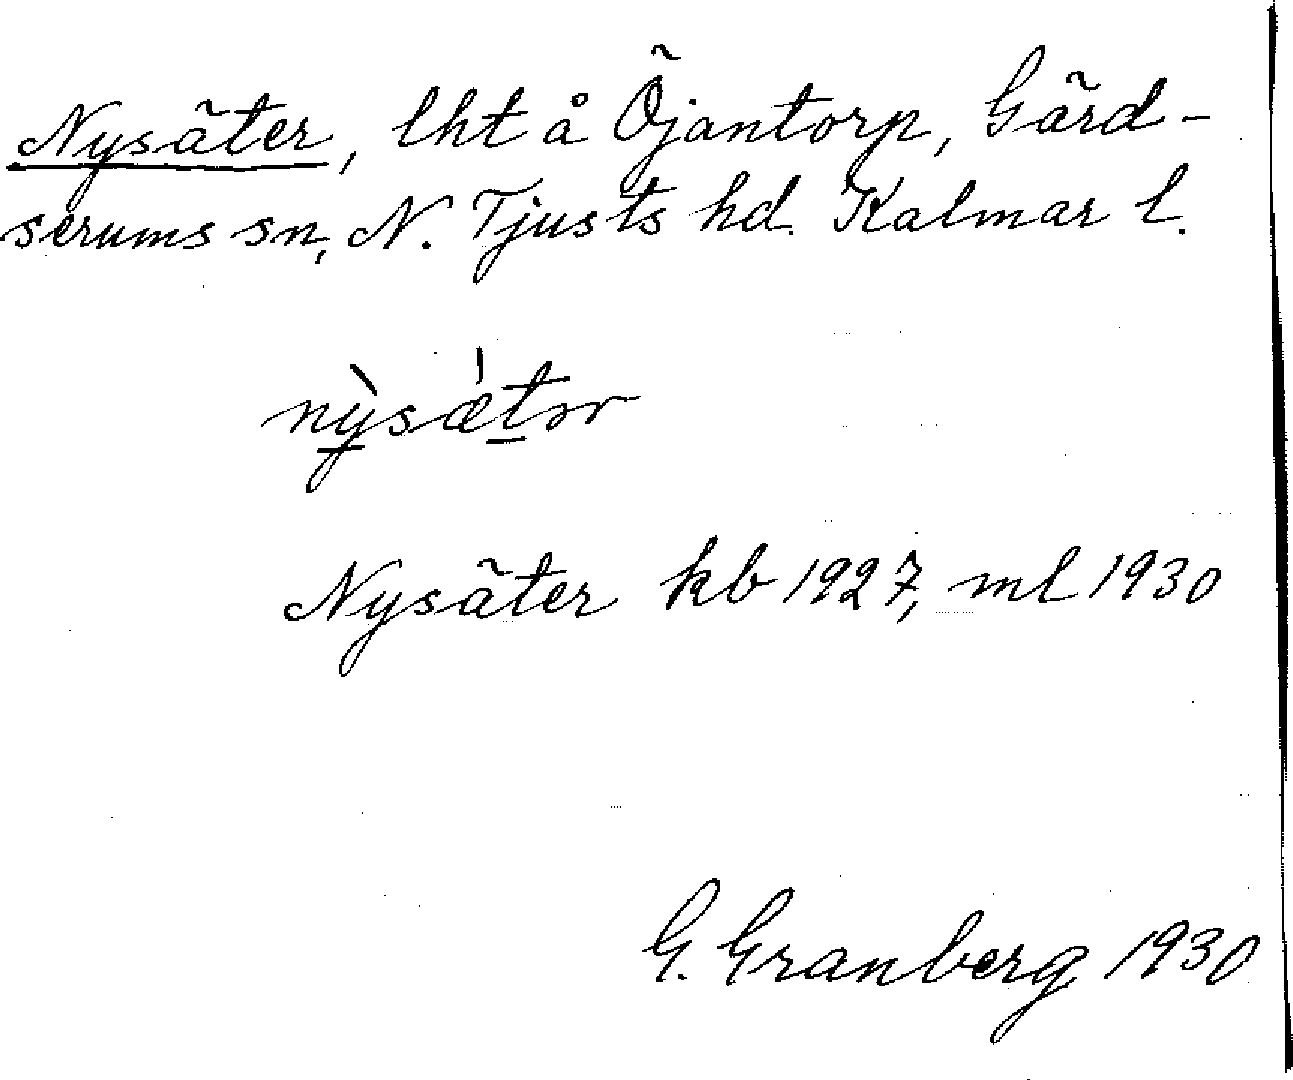 Nysäter, lht å Öjantorp, Gärd-
serums sn, N. Tjusts hd. Kalmar l.
Nysäter kb 1927, ml 1930
G. Granberg 1930